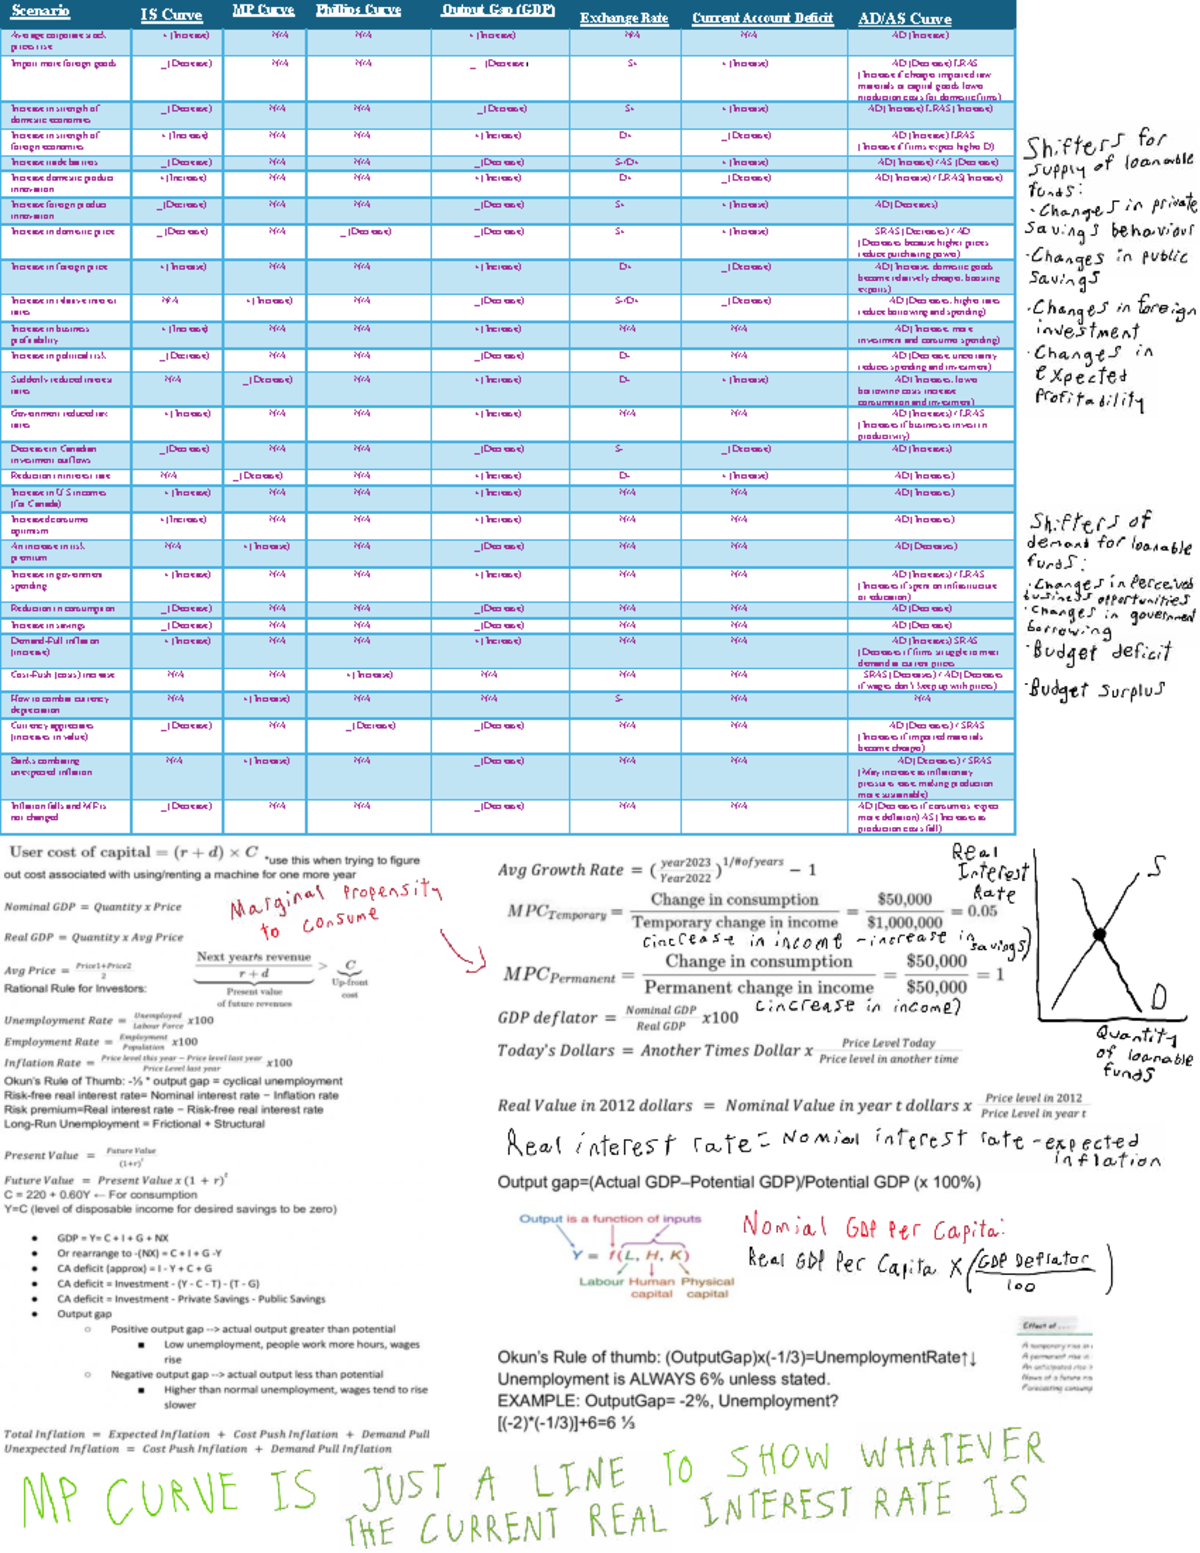 Scenario IS Curve MP Curve Phillips Curve Output Gap (GDP) Exchange Rate Current Account Deficit AD/AS Curve
Average corporate stock prices rise + (Increase) N/A N/A + (Increase) N/A N/A AD (Increase)
Import more foreign goods _ (Decrease) N/A N/A _ (Decrease) S+ + (Increase) AD (Decrease) LRAS (Increase if cheaper imported raw materials or capital goods lower production costs for domestic firms)
Increase in strength of domestic economies _ (Decrease) N/A N/A _ (Decrease) S+ + (Increase) AD (Increase) LRAS (Increase)
Increase in strength of foreign economies + (Increase) N/A N/A + (Increase) D+ _ (Decrease) AD (Increase) LRAS (Increase if firms expect higher D)
Increase trade barriers _ (Decrease) N/A N/A _ (Decrease) S-/D+ + (Increase) AD (Increase) / AS (Decrease)
Increase domestic product innovation + (Increase) N/A N/A + (Increase) D+ _ (Decrease) AD (Increase) / LRAS (Increase)
Increase foreign product innovation _ (Decrease) N/A N/A _ (Decrease) S+ + (Increase) AD (Decreases)
Increase in domestic price _ (Decrease) N/A _ (Decrease) _ (Decrease) S+ + (Increase) SRAS (Decreases) / AD (Decreases because higher prices reduce purchasing power)
Increase in foreign price + (Increase) N/A N/A + (Increase) D+ _ (Decrease) AD (Increase, domestic goods become relatively cheaper, boosting exports)
Increase in relative interest rates N/A + (Increase) N/A _ (Decrease) S-/D+ _ (Decrease) AD (Decreases, higher rates reduce borrowing and spending)
Increase in business profitability + (Increase) N/A N/A + (Increase) N/A N/A AD (Increase, more investment and consumer spending)
Increase in political risk _ (Decrease) N/A N/A _ (Decrease) D- N/A AD (Decrease, uncertainty reduces spending and investment)
Suddenly reduced interest rates N/A _ (Decrease) N/A + (Increase) D- + (Increase) AD (Increases, lower borrowing costs increase consumption and investment)
Government reduced tax rates + (Increase) N/A N/A + (Increase) N/A N/A AD (Increases) / LRAS (Increases if businesses invest in productivity)
Decrease in Canadian investment outflows _ (Decrease) N/A N/A _ (Decrease) S- _ (Decrease) AD (Increases)
Reduction in interest rate N/A _ (Decrease) N/A + (Increase) D- + (Increase) AD (Increases)
Increase in US incomes (for Canada) + (Increase) N/A N/A + (Increase) N/A N/A AD (Increases)
Increased consumer optimism + (Increase) N/A N/A + (Increase) N/A N/A AD (Increases)
An increase in risk premium N/A + (Increase) N/A _ (Decrease) N/A N/A AD (Decreases)
Increase in government spending + (Increase) N/A N/A + (Increase) N/A N/A AD (Increases) / LRAS (Increases if spent on infrastructure or education)
Reduction in consumption _ (Decrease) N/A N/A _ (Decrease) N/A N/A AD (Decrease)
Increase in savings _ (Decrease) N/A N/A _ (Decrease) N/A N/A AD (Decrease)
Demand-Pull inflation (increase) + (Increase) N/A N/A + (Increase) N/A N/A AD (Increases) SRAS (Decreases if firms struggle to meet demand at current prices
Cost-Push (costs) increase N/A N/A + (Increase) N/A N/A N/A SRAS (Decreases) / AD (Decreases if wages don't keep up with prices)
How to combat currency depreciation N/A + (Increase) N/A N/A S- N/A N/A
Currency appreciates (increases in value) _ (Decrease) N/A _ (Decrease) _ (Decrease) N/A N/A AD (Decreases) / SRAS (Increases if imported materials become cheaper)
Banks combating unexpected inflation N/A + (Increase) N/A _ (Decrease) N/A N/A AD (Decreases) / SRAS (May increase as inflationary pressures ease, making production more sustainable)
Inflation falls and MP is not changed _ (Decrease) N/A N/A _ (Decrease) N/A N/A AD (Decreases if consumers expect more deflation) AS (Increases as production costs fall)
Shifters for
supply of loanable
funds:
·Changes in private
savings behaviour
·Changes in public
savings
·Changes in foreign
investment
·Changes in
expected
profitability
Shifters of
demand for loanable
funds:
·Changes in perceived
business opportunities
·Changes in government
borrowing
·Budget deficit
·Budget surplus
User cost of capital = (r + d) × C *use this when trying to figure
out cost associated with using/renting a machine for one more year
Marginal Propensity
to consume
Nominal GDP = Quantity x Price
Real GDP = Quantity x Avg Price
Avg Price = Price1+Price2 / 2
Rational Rule for Investors:
Next year's revenue / r + d > C
Present value of future revenues
Up-front cost
Unemployment Rate = Unemployed / Labour Force x100
Employment Rate = Employment / Population x100
Inflation Rate = Price level this year − Price level last year / Price Level last year x100
Okun's Rule of Thumb: -½ * output gap = cyclical unemployment
Risk-free real interest rate= Nominal interest rate − Inflation rate
Risk premium=Real interest rate − Risk-free real interest rate
Long-Run Unemployment = Frictional + Structural
Present Value = Future Value / (1+r)^t
Future Value = Present Value x (1 + r)^t
C = 220 + 0.60Y ← For consumption
Y=C (level of disposable income for desired savings to be zero)
● GDP = Y= C + I + G + NX
● Or rearrange to -(NX) = C + I + G -Y
● CA deficit (approx) = I - Y + C + G
● CA deficit = Investment - (Y - C - T) - (T - G)
● CA deficit = Investment - Private Savings - Public Savings
● Output gap
○ Positive output gap --> actual output greater than potential
■ Low unemployment, people work more hours, wages
rise
○ Negative output gap --> actual output less than potential
■ Higher than normal unemployment, wages tend to rise
slower
Total Inflation = Expected Inflation + Cost Push Inflation + Demand Pull
Unexpected Inflation = Cost Push Inflation + Demand Pull Inflation
Avg Growth Rate = (year2023 / Year2022)^1/#of years − 1
MPC Temporary = Change in consumption / Temporary change in income = $50,000 / $1,000,000 = 0.05
(increase in income - increase in savings)
MPC Permanent = Change in consumption / Permanent change in income = $50,000 / $50,000 = 1
(increase in income)
GDP deflator = Nominal GDP / Real GDP x100
Today's Dollars = Another Times Dollar x Price Level Today / Price level in another time
Real Value in 2012 dollars = Nominal Value in year t dollars x Price level in 2012 / Price Level in year t
Real interest rate = Nomial interest rate - expected
inflation
Output gap=(Actual GDP–Potential GDP)/Potential GDP (x 100%)
Output is a function of inputs
Y = f(L, H, K)
Labour Human Physical
capital capital
Nomial GDP Per Capita:
Real GDP Per Capita X (GDP Deflator / 100)
Okun's Rule of thumb: (OutputGap)x(-1/3)=UnemploymentRate↑↓
Unemployment is ALWAYS 6% unless stated.
EXAMPLE: OutputGap= -2%, Unemployment?
[(-2)*(-1/3)]+6=6 ⅔
Real
Interest
Rate
S
D
Quantity
of loanable
funds
Effect of ...
A temporary rise in
A permanent rise in
An anticipated rise
News of a future
Forecasting consump
MP CURVE IS JUST A LINE TO SHOW WHATEVER
THE CURRENT REAL INTEREST RATE IS